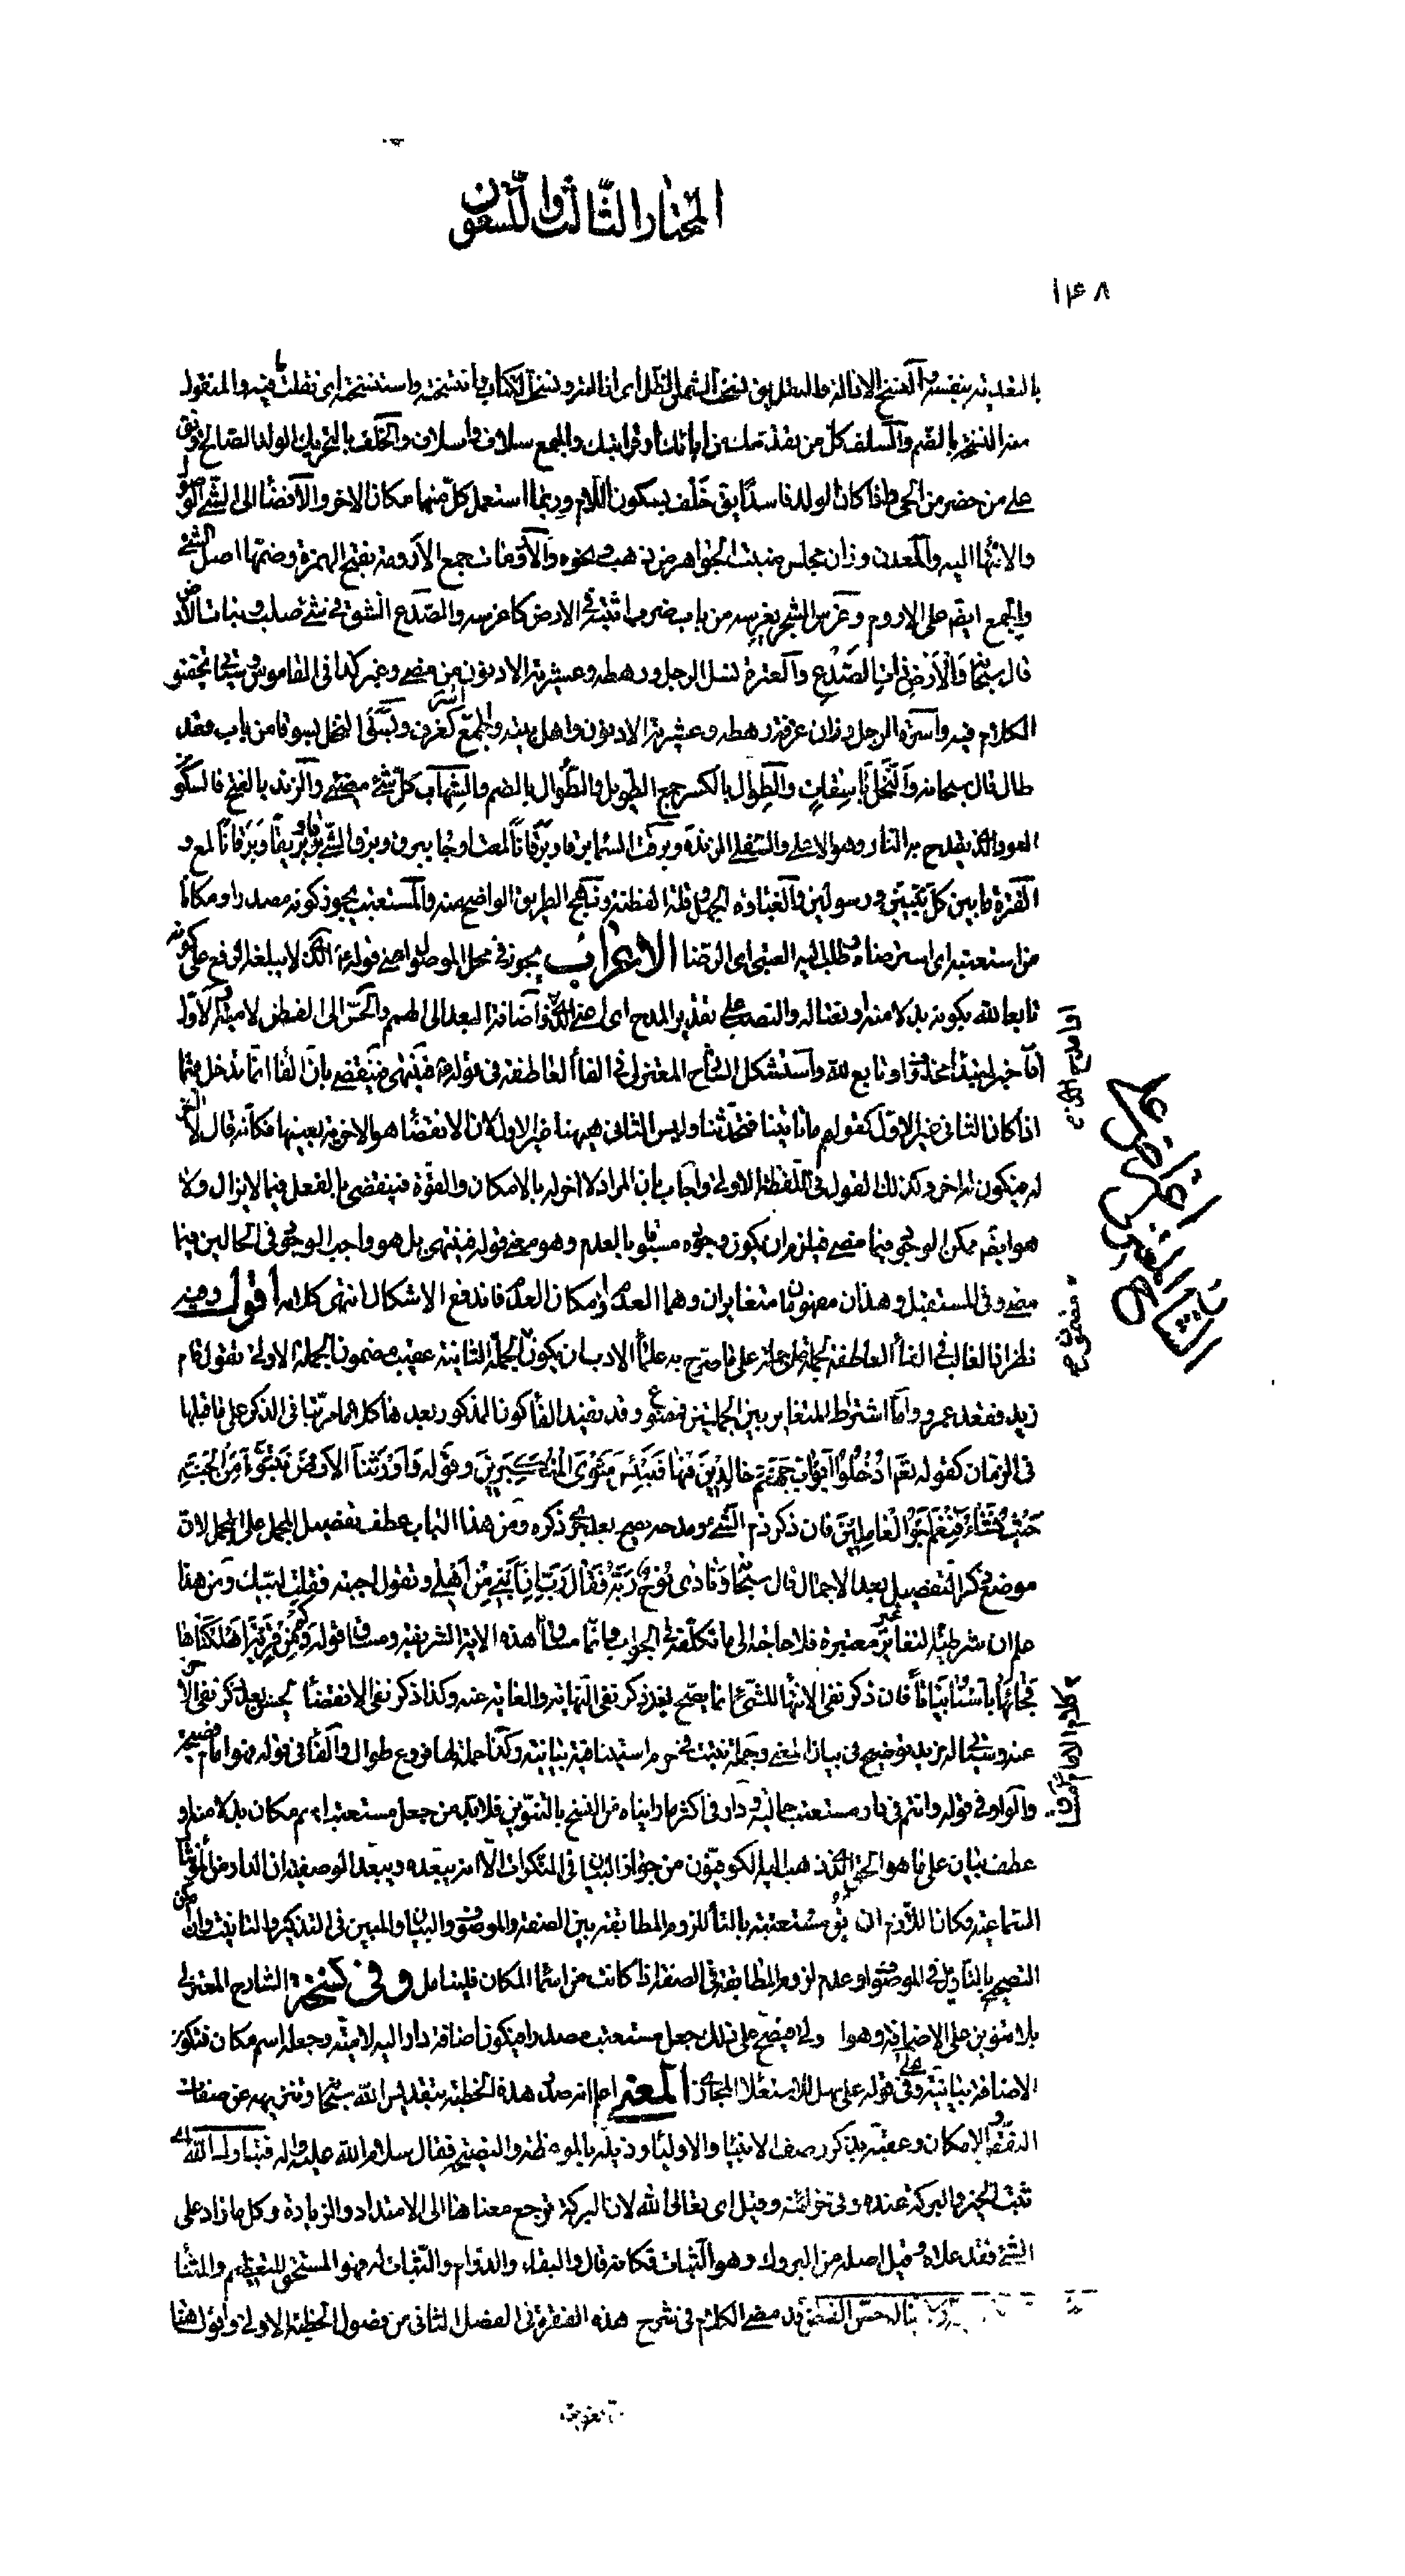 المختار الثالث والتسعون
۱۴۸
بالتعدية بنفسه والنسخ الازالة والنقل يق نسخت الشمس الظل اى ازالته ونسخت الكتاب وانتسخته واستنسخته اى نقلت ما فيه والمنقول
منه النسخة بالضم والسلف كل من تقدمك من آبائك او قرابتك والجمع سلاف واسلاف والخلف بالتحريك الولد الصالح
على من حضر من الحى واذا كان الولد فاسدا يق خلف بسكون اللام وربما استعمل كل منهما مكان الاخر والافضاء الى الشئ الوصول
والانتهاء اليه والمعدن وزان مجلس منبت الجواهر من ذهب ونحوه والارومات جمع الارومة بفتح الهمزة وضمها اصل الشئ
والجمع ايضم على الاروم وغرس الشجر يغرسه من باب ضرب اثبته فى الارض كاغرسه والصدع الشق فى شئ صلب ونبات الارض
قال سبحانه وَالْأَرْضِ ذاتِ الصَّدْعِ والعترة نسل الرجل ورهطه وعشيرته الادنون ممن مضى وغبر كذا فى القاموس وسيأتى تحقيق
الكلام فيه واسرة الرجل وزان غرفة رهطه وعشيرته الادنون واهل بيته والجمع اسر كغرف وبسق النخل بسوقا من باب قعد
طال قال سبحانه وَالنَّخْلَ باسِقاتٍ والطوال بالكسر جمع الطويل والطوال بالضم والشهاب كل شئ مضئ والزند بالفتح فالسكون
العود الذى يقدح به النار وهو الاعلى والسفلى الزندة وبرقت السماء برقا وبرقانا لمعت او جاءت ببرق وبرق الشئ برقا وبريقا وبرقانا لمع و
الفترة ما بين كل نبيين ورسولين والغباوة الجهل وقلة الفطنة ونهج الطريق الواضح منه والمستعتب يجوز كونه مصدرا ومكانا
من استعتبه اى استرضاه وطلب اليه العتبى اى الرضا الاعراب يجوز فى محل الموصول اعنى قوله الذى لا يبلغه الرفع على كونه
تابعا لله بكونه بدلا منه او نعتا له والنصب على تقدير المدح اى اعنى الذى واضافة البعد الى الهمم والحس الى الفطن لامية والاول
اما خبر لمبتدأ محذوف او تابع لله واستشكل الشارح المعتزلى فى الفاء العاطفة فى قوله فينتهى فينقضى بان الفاء انما تدخل فيما
اذا كان الثانى غير الاول كقولهم ما تأتينا فتحدثنا وليس الثانى هيهنا غير الاول لان الانقضاء هو الاخرية بعينها فكانه قال لا آخر
له فيكون له آخر وكذلك القول فى اللفظة الاولى واجاب بان المراد لا آخر له بالامكان والقوة فينقضى بالفعل فيما لا يزال ولا
هو ايضم ممكن الوجود فيما مضى فيلزم ان يكون وجوده مسبوقا بالعدم وهو معنى قوله فينتهى بل هو واجب الوجود فى الحالين فيما
مضى وفى المستقبل وهذان مفهومان متغايران وهما العدم وامكان العدم فاندفع الاشكال انتهى كلامه اقول وفيه
نظر اذ الغالب فى الفاء العاطفة لجملة على جملة على ما صرح به علماء الادب ان يكون الجملة الثانية عقيب مضمون الجملة الاولى تقول قام
زيد فقعد عمرو واما اشتراط التغاير بين الجملتين فممنوع وقد تفيد الفاء كون المذكور بعدها كلاما مرتبا فى الذكر على ما قبلها
فى الزمان كقوله تعم ادْخُلُوا أَبْوابَ جَهَنَّمَ خالِدِينَ فِيها فَبِئْسَ مَثْوَى الْمُتَكَبِّرِينَ وقوله وَأَوْرَثَنَا الْأَرْضَ نَتَبَوَّأُ مِنَ الْجَنَّةِ
حَيْثُ نَشاءُ فَنِعْمَ أَجْرُ الْعامِلِينَ فان ذكر ذم الشئ ومدحه يصح بعد جرى ذكره ومن هذا الباب عطف تفصيل المجمل على المجمل لان
موضع ذكر التفصيل بعد الاجمال قال سبحانه وَنادى نُوحٌ رَبَّهُ فَقالَ رَبِّ إِنَّ ابْنِي مِنْ أَهْلِي وتقول اجبته فقلت لبيك ومن هذا
علم ان شرطية التغاير غير معتبرة فلا حاجة الى ما تكلفه فى الجواب وانما مساق هذه الاية الشريفة ومساق قوله وَكَمْ مِنْ قَرْيَةٍ أَهْلَكْناها
فَجاءَها بَأْسُنا بَياتاً فان ذكر نفى الانتهاء للشئ انما يصح بعد ذكر نفى النهاية والغاية عنه وكذا ذكر نفى الانقضاء يحسن بعد ذكر نفى الاخر
عنه وسيأتى له مزيد توضيح فى بيان المعنى وجملة نبتت فى حرم استينافية بيانية وكذا جملة لها فروع طوال والفاء فى قوله فهو امام فصيحة
والواو فى قوله وانتم فى دار مستعتب حالية ودار فى اكثر ما رايناه من النسخ بالتنوين فلابد من جعل مستعتب اسم مكان بدلا منه او
عطف بيان على ما هو الحق الذى ذهب اليه الكوفيون من جواز البيان فى النكرات الا انه يبعده ويبعد الوصفية ان الدار من المؤنثات
السماعية فكان اللازم ان يق مستعتبة بالتاء للزوم المطابقة بين الصفة والموصوف والبيان والمبين فى التذكير والتانيث وان امكن
التصحيح بالتأويل فى الموصوف او عدم لزوم المطابقة فى الصفة اذا كانت من اسماء المكان فليتامل وفى نسخة الشارح المعتزلى
بلا تنوين على الاضافة وهو اولى فيصح على ذلك جعل مستعتب مصدرا فيكون اضافة دار اليه لامية وجعله اسم مكان فتكون
الاضافة بيانية وفى قوله على مهل للاستعلاء المجازى المعنى اعلم انه صدر هذه الخطبة بتقديس الله سبحانه وتنزيهه عن صفات
النقص والامكان وعقبه بذكر وصف الانبياء والاولياء وذيله بالموعظة والنصيحة فقال سلام الله عليه وآله فتبارك الله اى
ثبت الخير والبركة عنده وفى خزائنه وقيل اى تعالى الله لان البركة ترجع معناها الى الامتداد والزيادة وكل ما زاد على
الشئ فقد علاه وقيل اصله من البروك وهو الثبات فكانه قال والبقاء والدوام والثبات له فهو المستحق للتعظيم والثناء
يناله حس الفطن قد مضى الكلام فى شرح هذه الفقرة فى الفصل الثانى من فصول الخطبة الاولى ونقول هنا
اعتراض على
الشارح المعتزلى